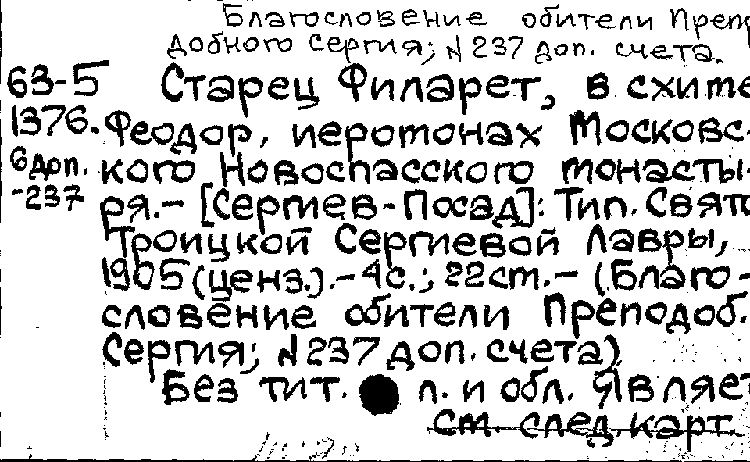 Благословение обители Преп
добного Сергия; N 237 доп. счета.
63-5 Старец Филарет, в схиме
1376. Феодор, иеротонах Московс-
6 доп. кого Новоспасского монасты-
-237 ря.- [Сергиев-Посад]: Тип. Свято
Троицкой Сергиевой Лавры,
1905 (ценз.).- 4с.; 22ст.- (Благо-
словение обители Преподоб.
Сергия; N 237 доп. счета)
Без тит. л. и обл. Являет
ст. след. карт.